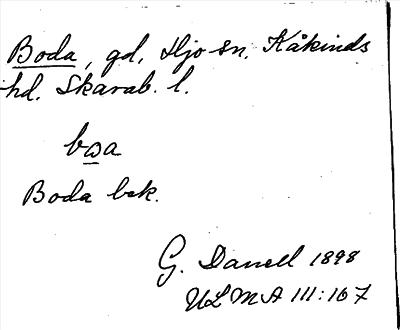 Boda, gd, Hjo sn. Kåkinds
hd. Skarab. l.
bωa
Boda bek.
G. Danell 1898
ULMA 111:167